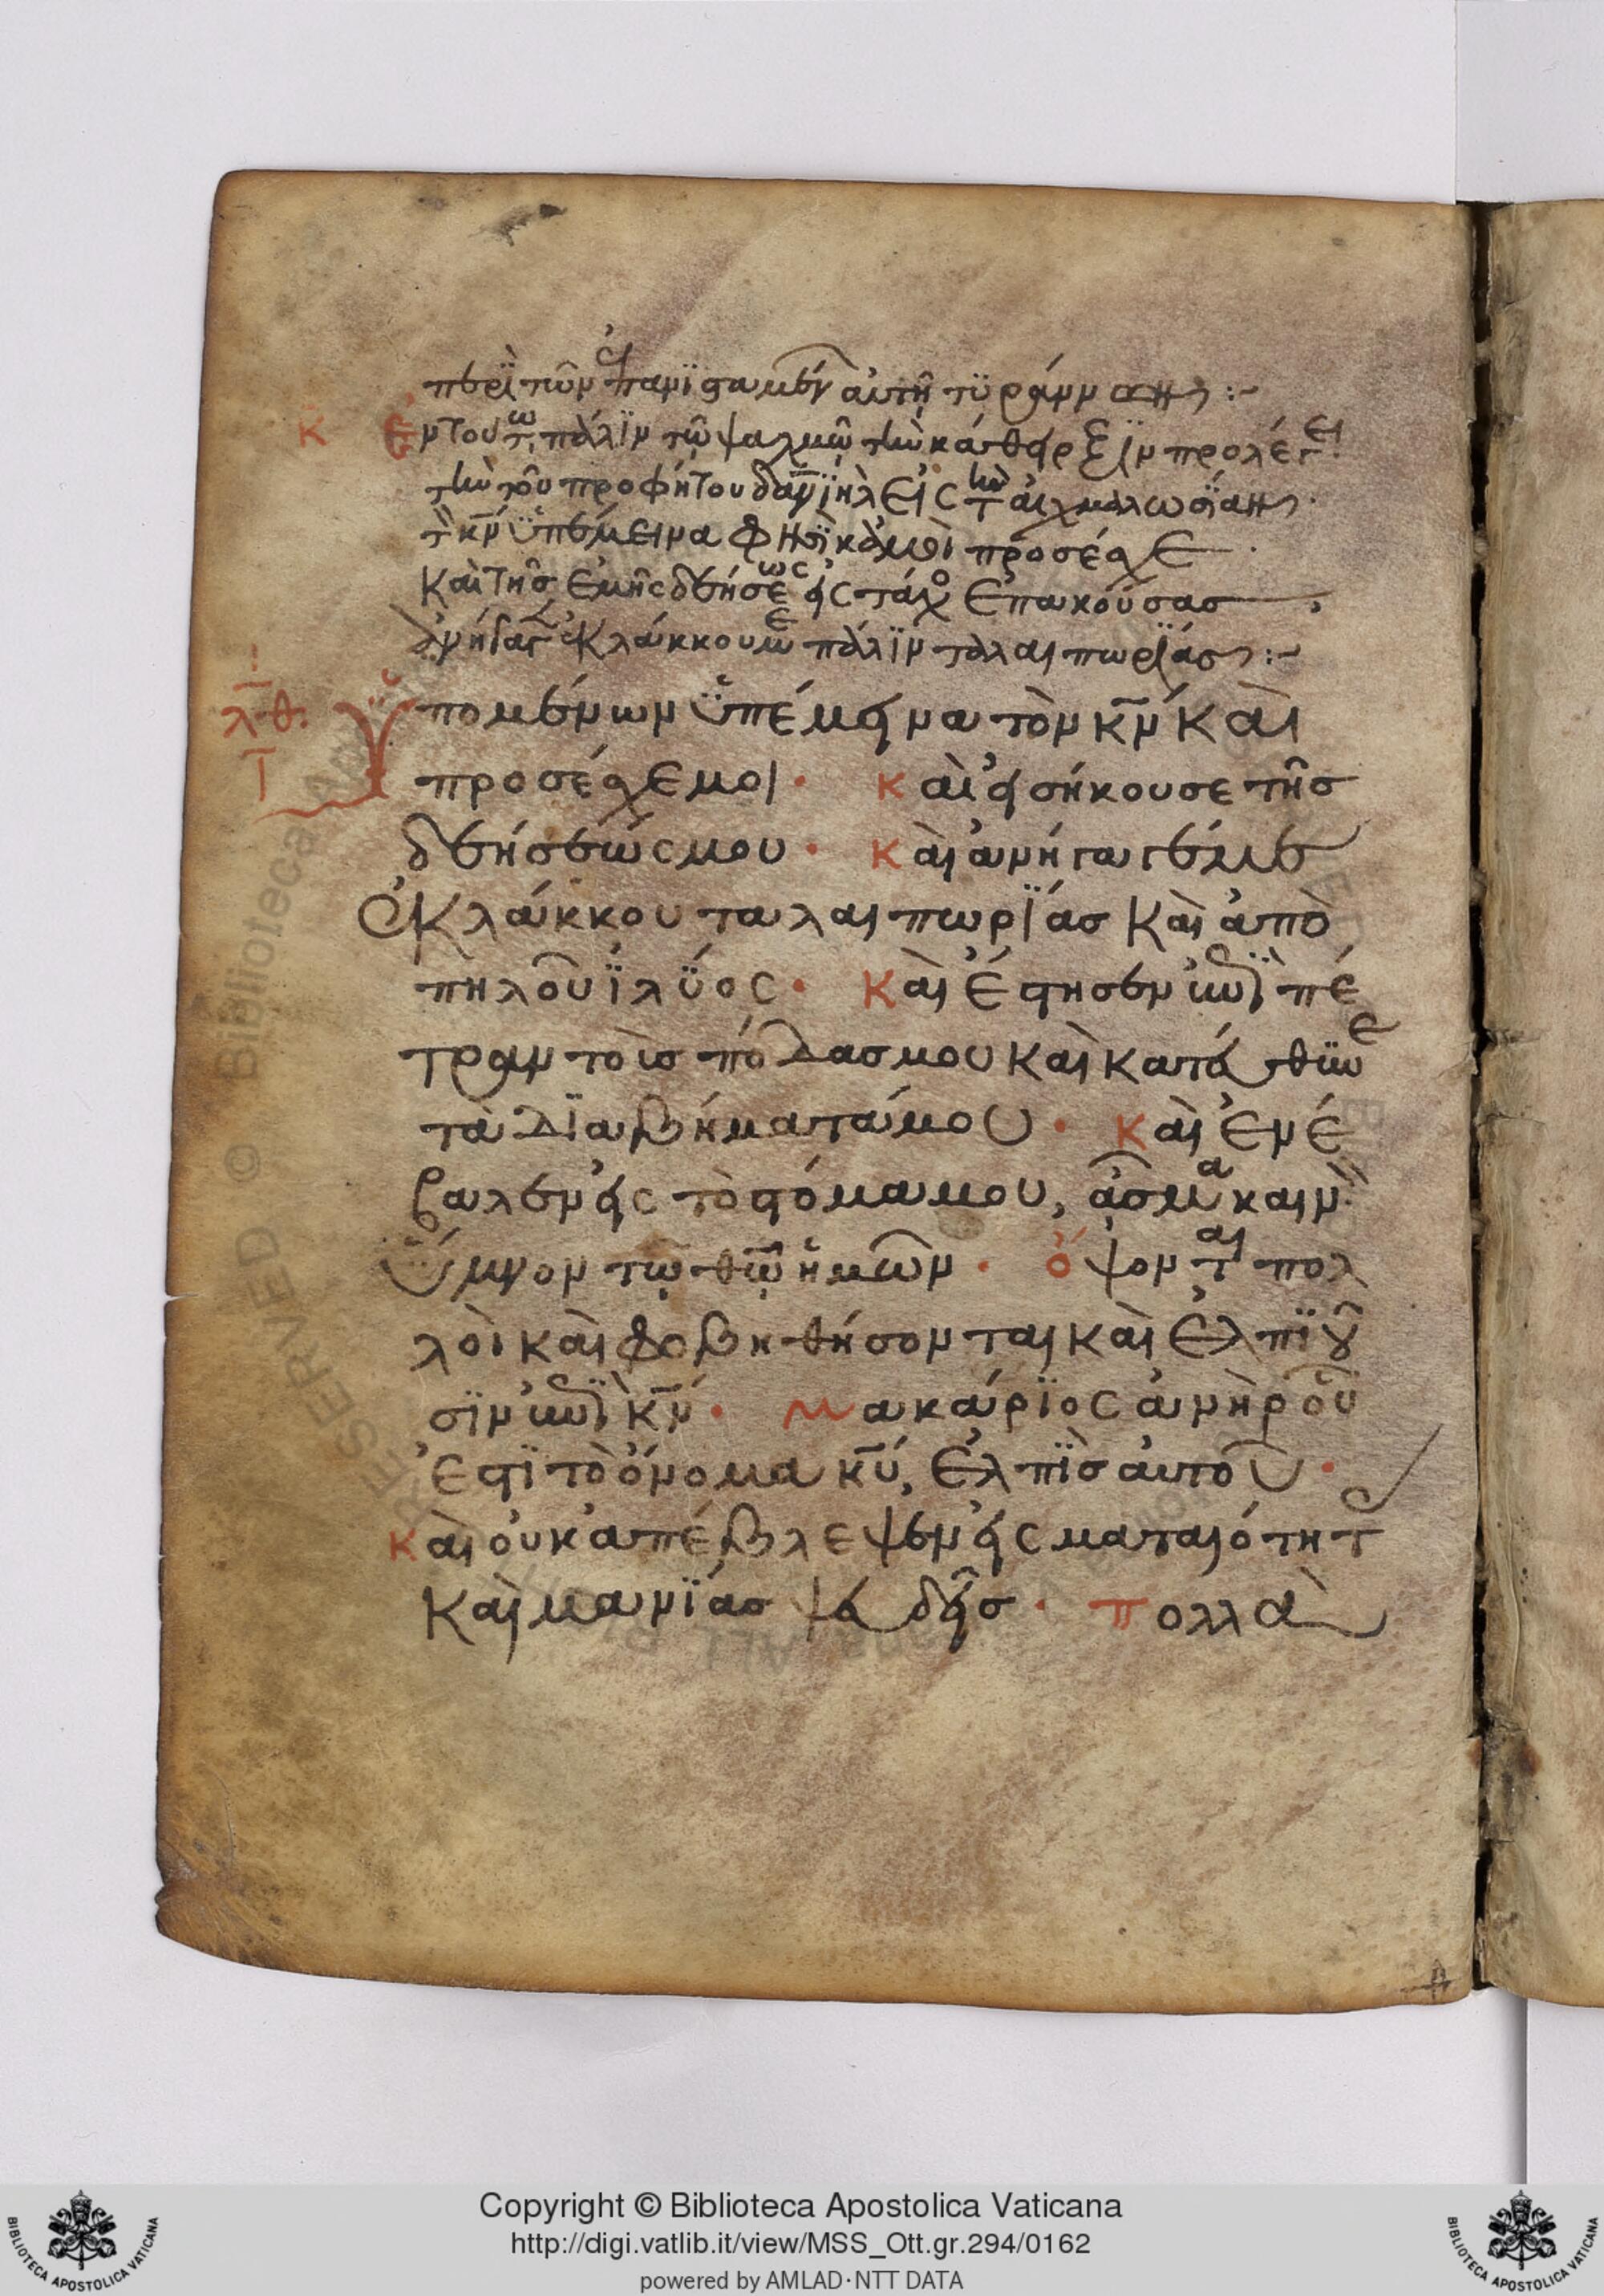 περὶ τῶν ἐπανισταμένων αὐτῆ τυράννων :-
κ ἐν τούτω πάλιν τῶ ψαλμῶ τὴν κάθειρξιν προλέγει
τὴν τοῦ προφήτου δανιὴλ εἰς τὴν αἰχμαλωσίαν.
τὸν κν ὑπέμεινα φησὶ κἀμοὶ προσέσχε
καὶ τῆς ἐμῆς δεήσεως εἰς τάχος ἐπακούσας,
ἀνήγαγεν ἐκ λάκκου με πάλιν ταλαιπωρίας :-
λθ. Ὑπομένων ὑπέμεινα τὸν κν καὶ
προσέσχε μοι · καὶ εἰσήκουσε τῆς
δεήσεώς μου · καὶ ἀνήγαγέ με
ἐκ λάκκου ταλαιπωρίας καὶ ἀπὸ
πηλοῦ ἰλύος · Καὶ ἔστησεν ἐπὶ πέ
τραν τοὺς πόδας μου καὶ κατεύθυνε
τὰ διαβήματά μου · καὶ ἐνέ
βαλεν εἰς τὸ στόμα μου, ᾆσμα καινὸν
ὕμνον τῶ θῶ ἡμῶν · ὄψονται πολ
λοὶ καὶ φοβηθήσονται καὶ ἐλπιοῦ
σιν ἐπὶ κν · μακάριος ἀνὴρ οὗ
ἐστι τὸ ὄνομα κυ, ἐλπὶς αὐτοῦ ·
καὶ οὐκ ἀπέβλεψεν εἰς ματαιότητ
καὶ μανίας ψευδεῖς · πολλὰ
Copyright © Biblioteca Apostolica Vaticana
http://digi.vatlib.it/view/MSS_Ott.gr.294/0162
powered by AMLAD·NTT DATA
BIBLIOTECA APOSTOLICA VATICANA
BIBLIOTECA APOSTOLICA VATICANA